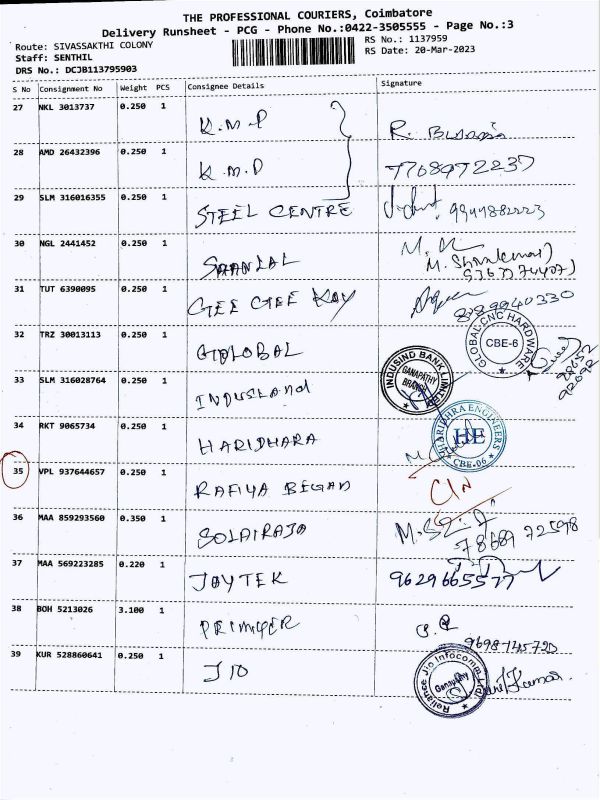 THE PROFESSIONAL COURIERS, Coimbatore
Delivery Runsheet - PCG - Phone No.:0422-3505555 - Page No.:3
Route: SIVASSAKTHI COLONY
Staff: SENTHIL
DRS No.: DCJB113795903
RS No.: 1137959
RS Date: 20-Mar-2023
S No Consignment No Weight PCS Consignee Details Signature
27 NKL 3013737 0.250 1 K.M.P
28 AMD 26432396 0.250 1 K.M.P 7708972237
29 SLM 316016355 0.250 1 STEEL CENTRE
30 NGL 2441452 0.250 1
31 TUT 6390095 0.250 1 GEE GEE KAY
32 TRZ 30013113 0.250 1 GLOBAL
GLOBAL CNC HARDWARE
CBE-6
33 SLM 316028764 0.250 1 INDUSLAND
INDUSIND BANK LIMITED
GANAPATHY
BRANCH
34 RKT 9065734 0.250 1 HARIDHARA
HARIDHRA ENGINEERS
HE
CBE-06
35 VPL 937644657 0.250 1 RAFIYA BEGAM
36 MAA 859293560 0.350 1 SOLAIRAJA
78689 72598
37 MAA 569223285 0.220 1 JOYTEK 9629665577
38 BOH 5213026 3.100 1
39 KUR 528860641 0.250 1 JIO
Reliance Jio Infocomm Ltd
Ganapathy
Kumar